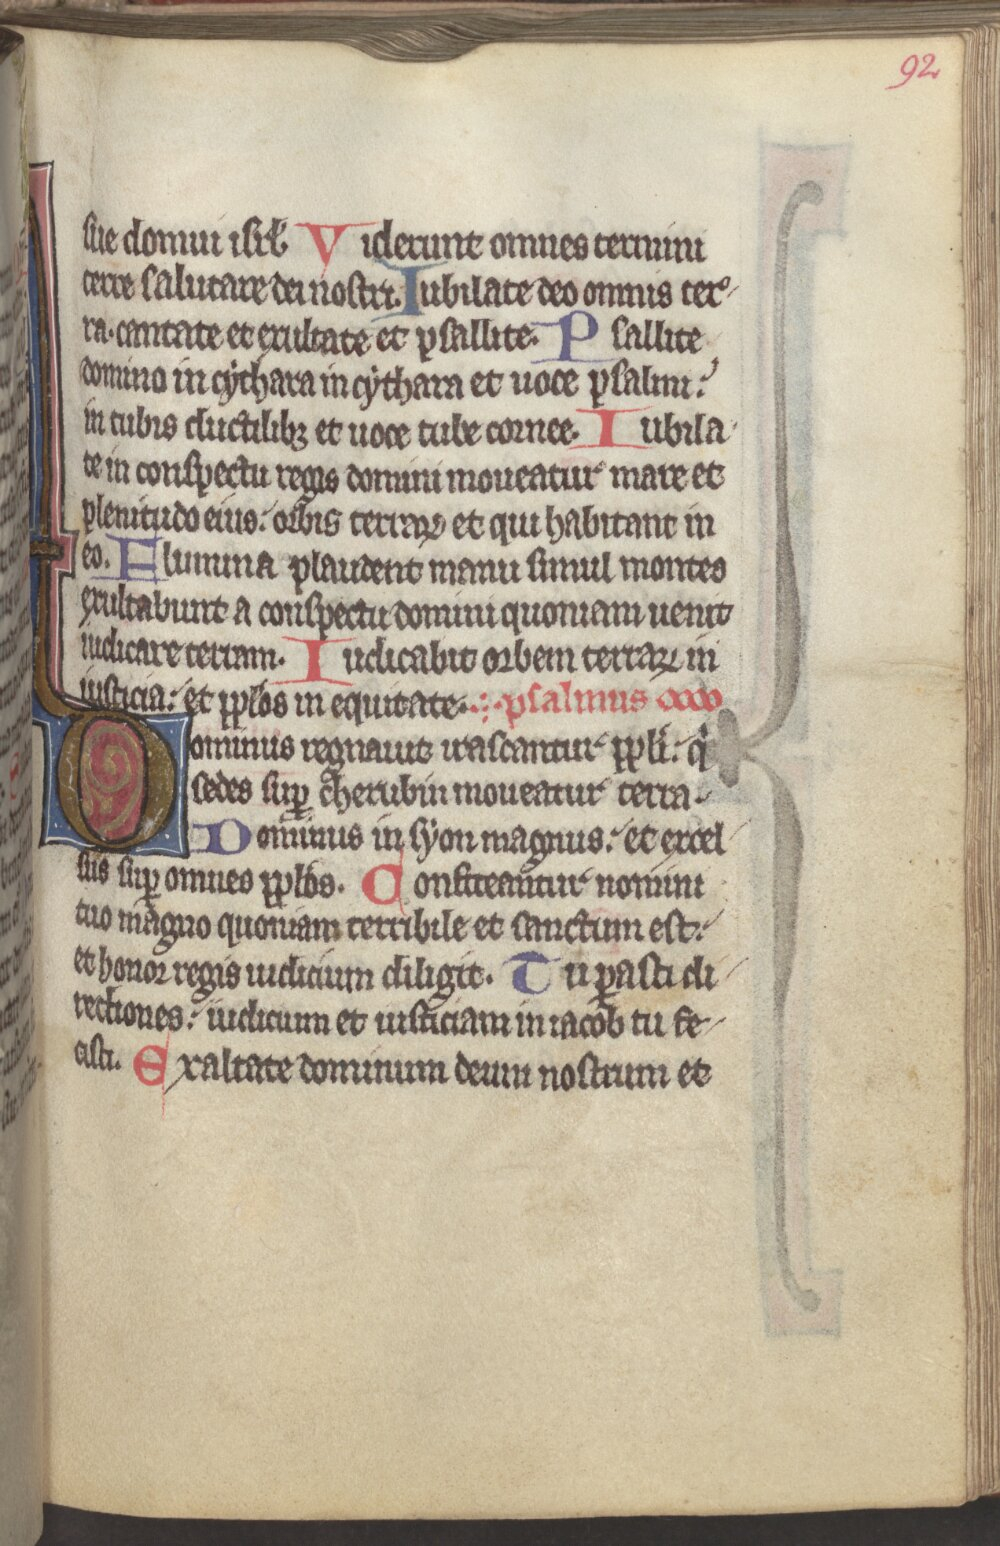 92
sue domui isrl̃. Viderunt omnes termini
terre salutare dei nostri. Iubilate deo omnis ter
ra. cantate et exultate et psallite. Psallite
domino in cythara in cythara et uoce psalmi:
in tubis ductilibꝫ et uoce tube cornee. Iubila
te in conspectu regis domini moueatur mare et
plenitudo eius: orbis terraꝝ et qui habitant in
eo. Flumina plaudent manu simul montes
exultabunt a conspectu domini quoniam uenit
iudicare terram. Iudicabit orbem terraꝝ in
iusticia: et pplõs in equitate. psalmus
Dominus regnauit irascantur ppli: q̃
sedes sup̱ cherubin moueatur terra.
Dominus in syon magnus: et excel
sus sup̱ omnes pplõs. Confiteantur nomini
tuo magno quoniam terribile et sanctum est:
et honor regis iudicium diligit. Tu parasti di
rectiones: iudicium et iusticiam in iacob tu fe
cisti. Exaltate dominum deum nostrum et